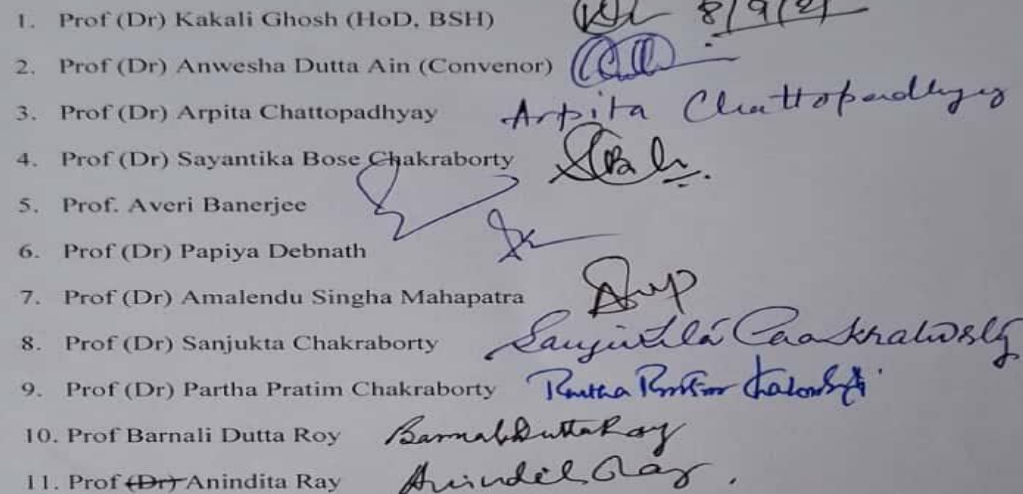 1. Prof (Dr) Kakali Ghosh (HoD, BSH) 8/9/21
2. Prof (Dr) Anwesha Dutta Ain (Convenor)
3. Prof (Dr) Arpita Chattopadhyay Arpita Chattopadhyay
4. Prof (Dr) Sayantika Bose Chakraborty
5. Prof. Averi Banerjee
6. Prof (Dr) Papiya Debnath
7. Prof (Dr) Amalendu Singha Mahapatra
8. Prof (Dr) Sanjukta Chakraborty
9. Prof (Dr) Partha Pratim Chakraborty
10. Prof Barnali Dutta Roy
11. Prof (Dr) Anindita Ray